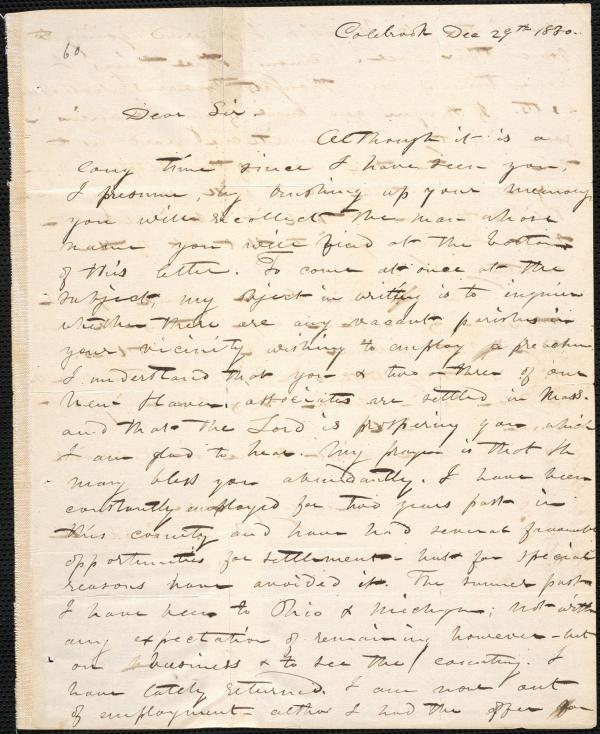 60
Colebrook Dec 29th 1830.
Dear Sir
Although it is a
long time since I have seen you,
I presume, by brushing up your memory
you will recollect the man whose
name you will find at the bottom
of this letter. To come at once at the
subject, my object in writing is to inquire
whether there are any vacant parishes in
your vicinity wishing to employ a preacher.
I understand that you & two or three of our
New Haven associates are settled in Mass.
and that the Lord is prospering you which
I am glad to hear. My prayer is that He
may bless you abundantly. I have been
constantly employed for two years past in
this county and have had several favorable
opportunities for settlement - but for special
reasons have avoided it. The summer past
I have been to Ohio & Michigan; not with
any expectation of remaining however - but
on business & to see the country. I
have lately returned. I am now out
of employment altho I had the offer for